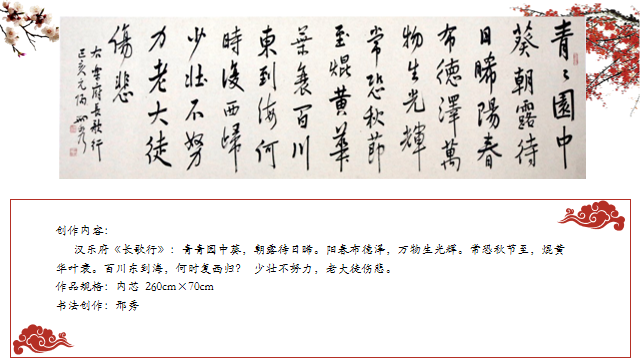 青〻園中
葵朝露待
日晞陽春
布德澤萬
物生光輝
常恐秋節
至焜黃華
葉衰百川
東到海何
時復西歸
少壯不努
力老大徒
傷悲
右樂府長歌行
创作内容：
汉乐府《长歌行》：青青园中葵，朝露待日晞。阳春布德泽，万物生光辉。常恐秋节至，焜黄
华叶衰。百川东到海，何时复西归？ 少壮不努力，老大徒伤悲。
作品规格：内芯 260cm×70cm
书法创作：邢秀